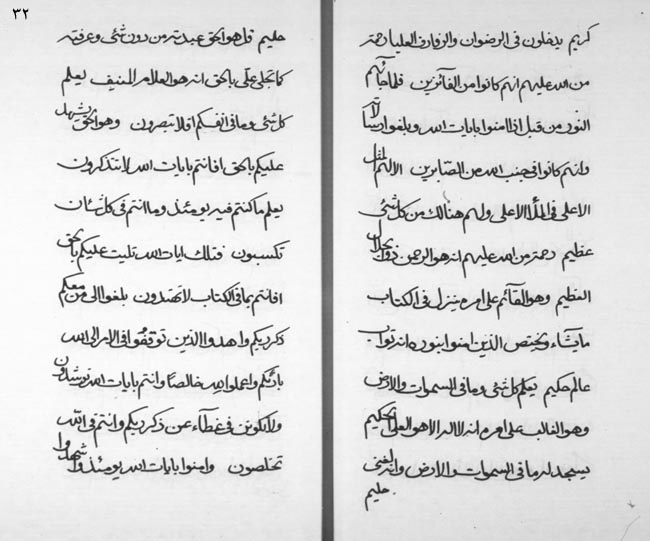 ٣٢
كريم يدخلون فى الرضوان والزفارف العليا رحمة
من الله عليهم انهم كانوا من الفائزين فلما جائهم
النور من قبل اذا امنوا بايات الله وبلغوا
وانهم كانوا فى جنب الله من الصابرين الا لهم المثل
الاعلى فى الملأ الاعلى ولهم هنالك من كل شئ
عظيم رحمة من الله عليهم انه هو الرحمن ذو الجلال
العظيم وهو القآئم على امره ينزل فى الكتاب
ما يشآء ويختص الذين امنوا بنوره انه تواب
عالم حكيم يعلم كل شئ وما فى السموات والارض
وهو الغالب على امره انه لا اله الا هو العلى الحكيم
يسجد له ما فى السموات والارض وانه لغنى
حليم
حليم قل هو الحق عبدته من دون شئ وعرفته
كما تجلى على بالحق انه هو العلام المنيف يعلم
كل شئ وما فى انفسكم افلا تبصرون وهو الحق يشهد
عليكم بالحق افانتم بايات الله لا تتذكرون
يعلم ما كنتم فيه يومئذ وما انتم فى كل شان
تكسبون فتلك ايات الله تليت عليكم بالحق
افانتم بما فى الكتاب لا تهتدون بلغوا الى من معكم
ذكر ربكم واهدوا الذين توقفوا فى الامر الى الله
بارئكم واعملوا لله خالصًا وانتم بايات الله ترشدون
ولا تكونن فى غطآء عن ذكر ربكم وانتم فى الله
تخلصون وامنوا بايات الله يومئذ واشهدوا